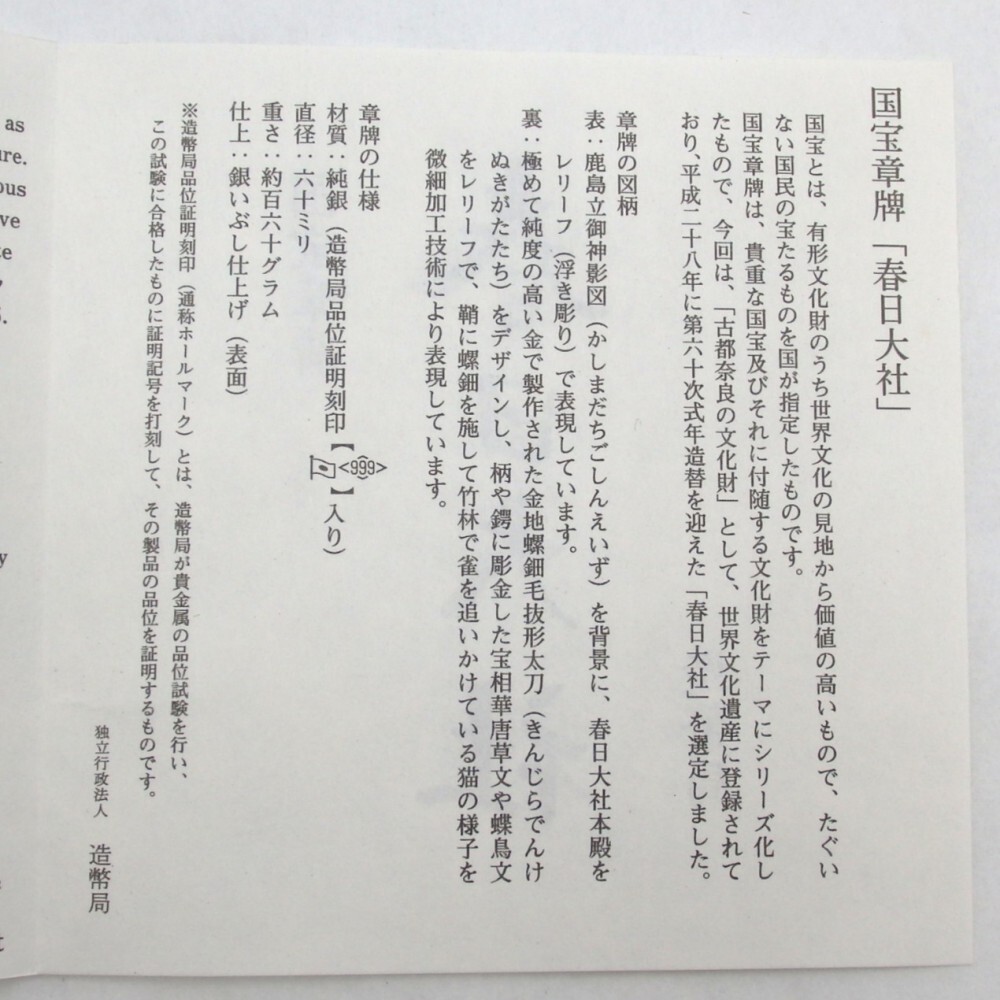 国宝章牌「春日大社」
国宝とは、有形文化財のうち世界文化の見地から価値の高いもので、たぐい
ない国民の宝たるものを国が指定したものです。
国宝章牌は、貴重な国宝及びそれに付随する文化財をテーマにシリーズ化し
たもので、今回は、「古都奈良の文化財」として、世界文化遺産に登録されて
おり、平成二十八年に第六十次式年造替を迎えた「春日大社」を選定しました。
章牌の図柄
表：鹿島立御神影図（かしまだちごしんえいず）を背景に、春日大社本殿を
レリーフ（浮き彫り）で表現しています。
裏：極めて純度の高い金で製作された金地螺鈿毛抜形太刀（きんじらでんけ
ぬきがたたち）をデザインし、柄や鍔に彫金した宝相華唐草文や蝶鳥文
をレリーフで、鞘に螺鈿を施して竹林で雀を追いかけている猫の様子を
微細加工技術により表現しています。
章牌の仕様
材質：純銀（造幣局品位証明刻印【<999>】入り）
直径：六十ミリ
重さ：約百六十グラム
仕上：銀いぶし仕上げ（表面）
※造幣局品位証明刻印（通称ホールマーク）とは、造幣局が貴金属の品位試験を行い、
この試験に合格したものに証明記号を打刻して、その製品の品位を証明するものです。
独立行政法人 造幣局
as
ure.
ous
ve